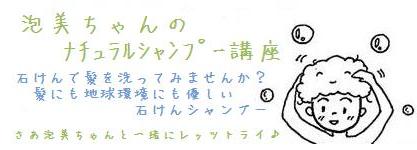 泡美ちゃんの
ﾅﾁｭﾗﾙｼｬﾝﾌﾟｰ講座
石けんで髪を洗ってみませんか？
髪にも地球環境にも優しい
石けんシャンプー
さあ泡美ちゃんと一緒にレッツトライ♪